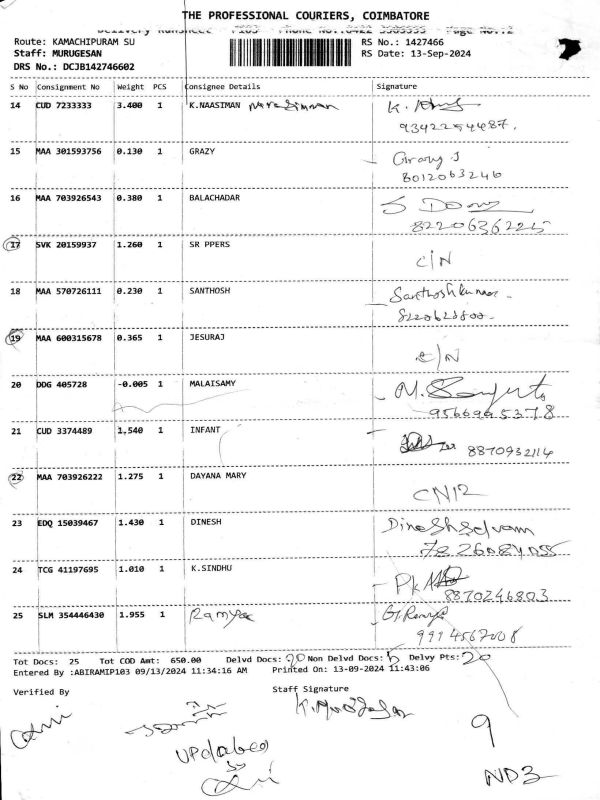 THE PROFESSIONAL COURIERS, COIMBATORE
Delivery Runsheet Phone No.:0422 Page No.:2
Route: KAMACHIPURAM SU
Staff: MURUGESAN
DRS No.: DCJB142746602
RS No.: 1427466
RS Date: 13-Sep-2024
S No Consignment No Weight PCS Consignee Details Signature
14 CUD 7233333 3.400 1 K.NAASIMAN Narasimman
9342254487.
15 MAA 301593756 0.130 1 GRAZY
8012063246
16 MAA 703926543 0.380 1 BALACHADAR
8220636225
17 SVK 20159937 1.260 1 SR PPERS
C/N
18 MAA 570726111 0.230 1 SANTHOSH Santhoshkumar
19 MAA 600315678 0.365 1 JESURAJ
C/N
20 DDG 405728 -0.005 1 MALAISAMY
9566995378
21 CUD 3374489 1.540 1 INFANT
8870932114
22 MAA 703926222 1.275 1 DAYANA MARY
CN12
23 EDQ 15039467 1.430 1 DINESH Dineshselvam
24 TCG 41197695 1.010 1 K.SINDHU
8870246803
25 SLM 354446430 1.955 1 Ramya G. Ramya
9914567008
Tot Docs: 25 Tot COD Amt: 650.00 Delvd Docs: 20 Non Delvd Docs: 5 Delvy Pts: 20
Entered By :ABIRAMIP103 09/13/2024 11:34:16 AM Printed On: 13-09-2024 11:43:06
Verified By
Staff Signature
Updated
by
9
ND3